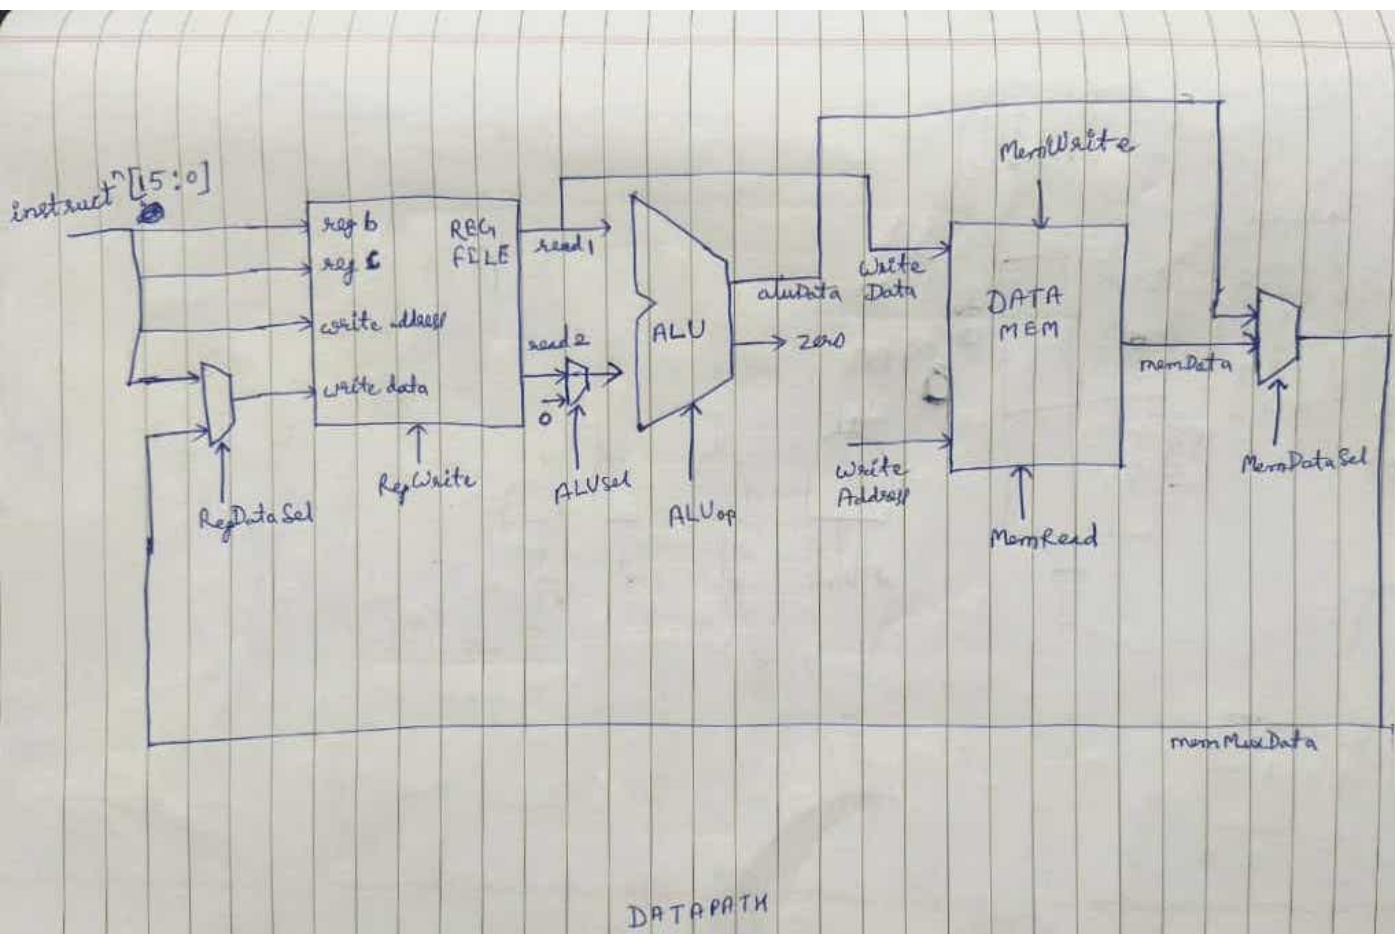 instructⁿ[15:0]
reg b
REG
FILE
reg c
write address
write data
read1
read2
0
RegDataSel
RegWrite
ALUSel
ALU
ALUop
aluData
zero
MemWrite
Write
Data
DATA
MEM
Write
Address
MemRead
memData
MemDataSel
memMuxData
DATAPATH